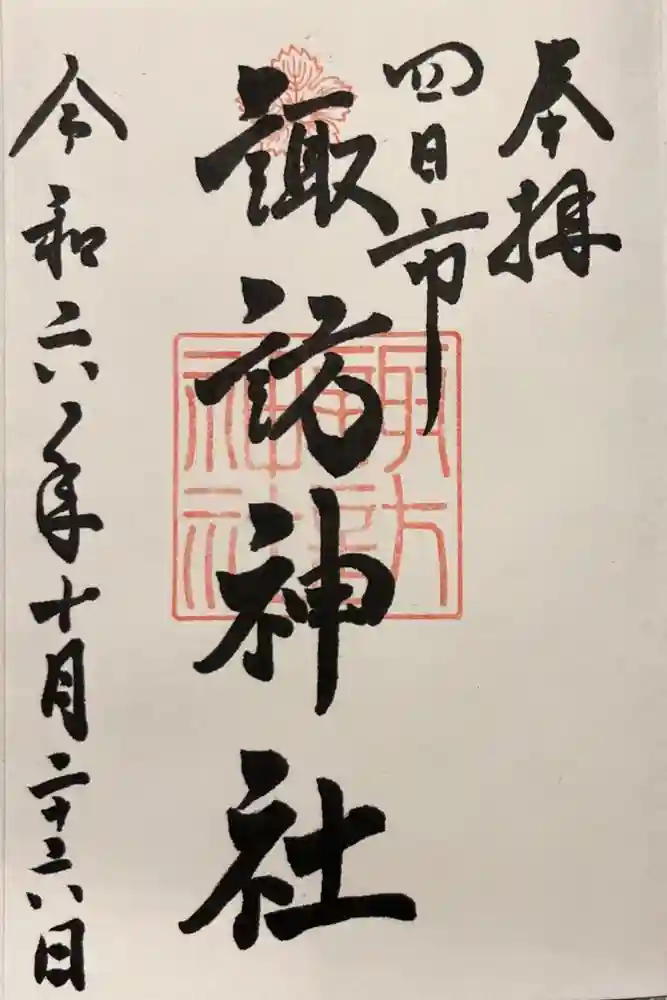 奉拝
四日市
諏訪神社
令和六年十月二十六日
諏訪
神社